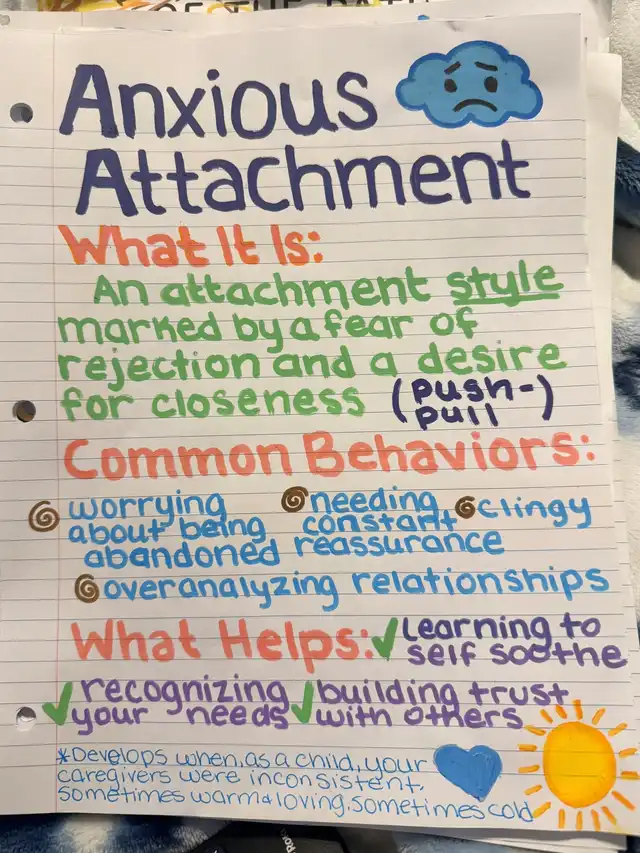 Anxious
Attachment
What It Is:
An attachment style
marked by a fear of
rejection and a desire
for closeness (push-
pull)
Common Behaviors:
worrying
about being
abandoned
needing
constant
reassurance
clingy
overanalyzing relationships
What Helps:
✓ Learning to
self soothe
✓ recognizing
your needs
✓ building trust
with others
*Develops when, as a child, your
caregivers were inconsistent,
sometimes warm & loving, sometimes cold